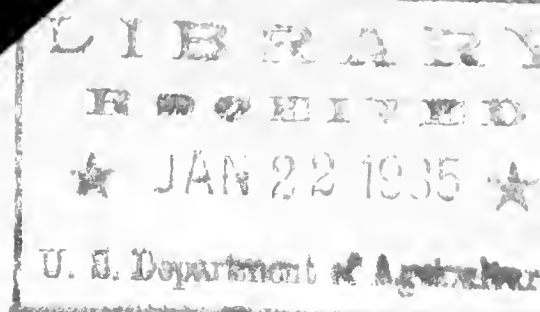 LIBRARY
RECEIVED
★ JAN 22 1935 ★
U. S. Department of Agriculture